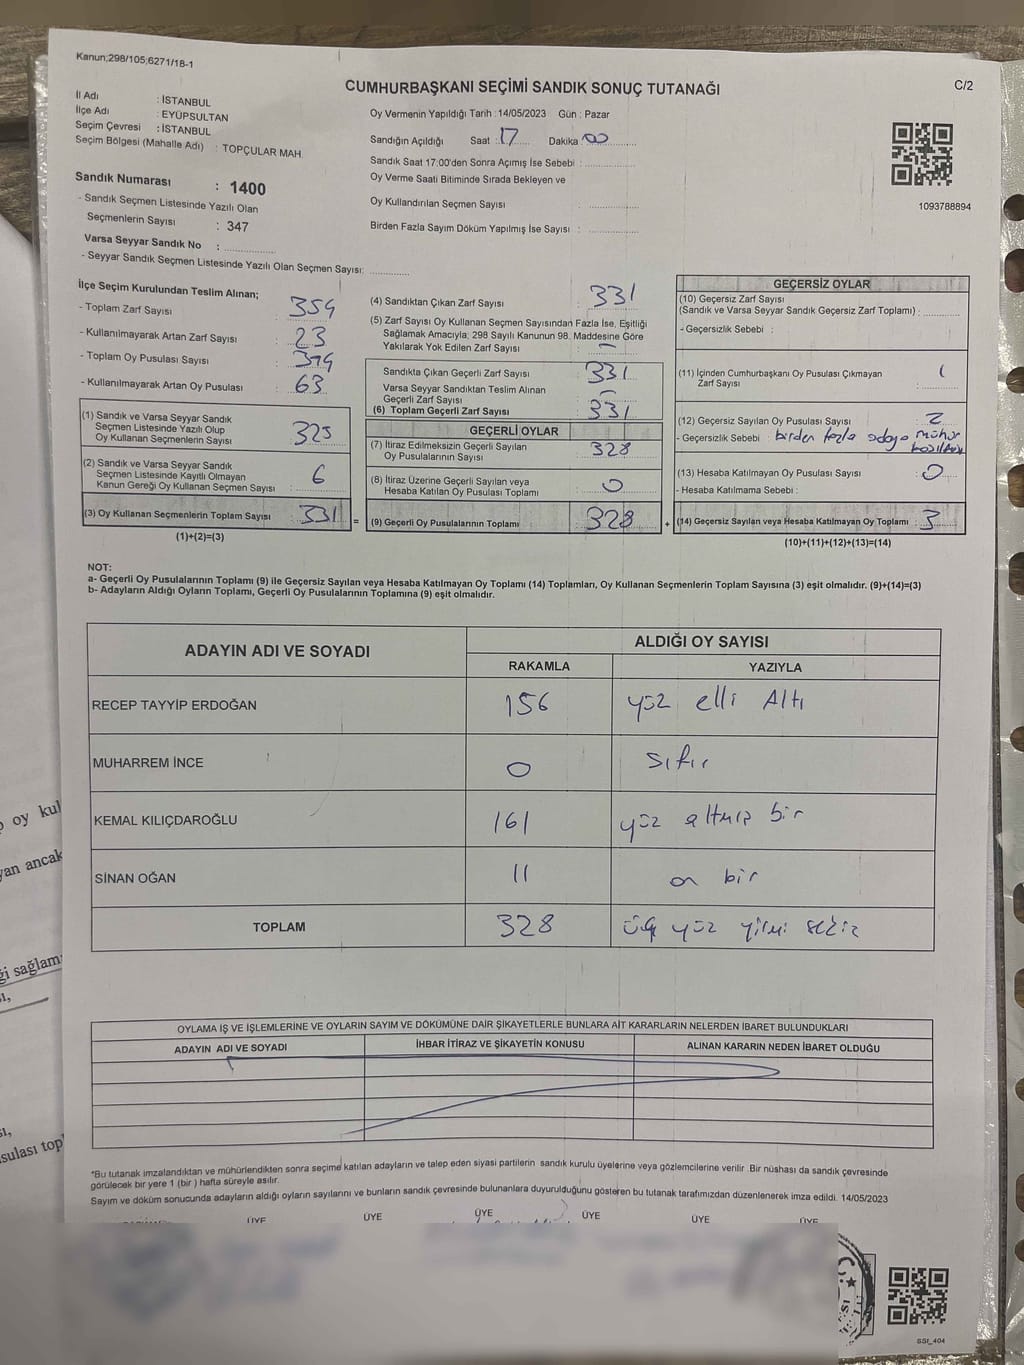 Kanun;298/105;6271/18-1
CUMHURBAŞKANI SEÇİMİ SANDIK SONUÇ TUTANAĞI
C/2
İl Adı : İSTANBUL
İlçe Adı : EYÜPSULTAN
Seçim Çevresi : İSTANBUL
Seçim Bölgesi (Mahalle Adı) : TOPÇULAR MAH.
Sandık Numarası : 1400
- Sandık Seçmen Listesinde Yazılı Olan
Seçmenlerin Sayısı : 347
Varsa Seyyar Sandık No : ..............
- Seyyar Sandık Seçmen Listesinde Yazılı Olan Seçmen Sayısı: ............
Oy Vermenin Yapıldığı Tarih : 14/05/2023 Gün : Pazar
Sandığın Açıldığı Saat : 17 Dakika : 00
Sandık Saat 17:00'den Sonra Açımış İse Sebebi : ..............
Oy Verme Saati Bitiminde Sırada Bekleyen ve
Oy Kullandırılan Seçmen Sayısı : ..............
Birden Fazla Sayım Döküm Yapılmış İse Sayısı : ..............
1093788894
İlçe Seçim Kurulundan Teslim Alınan;
- Toplam Zarf Sayısı : 354
- Kullanılmayarak Artan Zarf Sayısı : 23
- Toplam Oy Pusulası Sayısı : 394
- Kullanılmayarak Artan Oy Pusulası : 63
(1) Sandık ve Varsa Seyyar Sandık
Seçmen Listesinde Yazılı Olup
Oy Kullanan Seçmenlerin Sayısı : 325
(2) Sandık ve Varsa Seyyar Sandık
Seçmen Listesinde Kayıtlı Olmayan
Kanun Gereği Oy Kullanan Seçmen Sayısı : 6
(3) Oy Kullanan Seçmenlerin Toplam Sayısı : 331 =
(1)+(2)=(3)
(4) Sandıktan Çıkan Zarf Sayısı : 331
(5) Zarf Sayısı Oy Kullanan Seçmen Sayısından Fazla İse, Eşitliği
Sağlamak Amacıyla; 298 Sayılı Kanunun 98. Maddesine Göre
Yakılarak Yok Edilen Zarf Sayısı : -
Sandıkta Çıkan Geçerli Zarf Sayısı : 331
Varsa Seyyar Sandıktan Teslim Alınan
Geçerli Zarf Sayısı : -
(6) Toplam Geçerli Zarf Sayısı : 331
GEÇERLİ OYLAR
(7) İtiraz Edilmeksizin Geçerli Sayılan
Oy Pusulalarının Sayısı : 328
(8) İtiraz Üzerine Geçerli Sayılan veya
Hesaba Katılan Oy Pusulası Toplamı : 0
(9) Geçerli Oy Pusulalarının Toplamı : 328 +
GEÇERSİZ OYLAR
(10) Geçersiz Zarf Sayısı
(Sandık ve Varsa Seyyar Sandık Geçersiz Zarf Toplamı) : ............
- Geçersizlik Sebebi :
(11) İçinden Cumhurbaşkanı Oy Pusulası Çıkmayan
Zarf Sayısı : 1
(12) Geçersiz Sayılan Oy Pusulası Sayısı : 2
- Geçersizlik Sebebi : birden fazla adaya mühür
basılması
(13) Hesaba Katılmayan Oy Pusulası Sayısı : 0
- Hesaba Katılmama Sebebi :
(14) Geçersiz Sayılan veya Hesaba Katılmayan Oy Toplamı : 3
(10)+(11)+(12)+(13)=(14)
NOT:
a- Geçerli Oy Pusulalarının Toplamı (9) ile Geçersiz Sayılan veya Hesaba Katılmayan Oy Toplamı (14) Toplamları, Oy Kullanan Seçmenlerin Toplam Sayısına (3) eşit olmalıdır. (9)+(14)=(3)
b- Adayların Aldığı Oyların Toplamı, Geçerli Oy Pusulalarının Toplamına (9) eşit olmalıdır.
ADAYIN ADI VE SOYADI ALDIĞI OY SAYISI
RAKAMLA YAZIYLA
RECEP TAYYİP ERDOĞAN 156 yüz elli Altı
MUHARREM İNCE 0 sıfır
KEMAL KILIÇDAROĞLU 161 yüz altmış bir
SİNAN OĞAN 11 on bir
TOPLAM 328 üç yüz yirmi sekiz
OYLAMA İŞ VE İŞLEMLERİNE VE OYLARIN SAYIM VE DÖKÜMÜNE DAİR ŞİKAYETLERLE BUNLARA AİT KARARLARIN NELERDEN İBARET BULUNDUKLARI
ADAYIN ADI VE SOYADI İHBAR İTİRAZ VE ŞİKAYETİN KONUSU ALINAN KARARIN NEDEN İBARET OLDUĞU
*Bu tutanak imzalandıktan ve mühürlendikten sonra seçime katılan adayların ve talep eden siyasi partilerin sandık kurulu üyelerine veya gözlemcilerine verilir .Bir nüshası da sandık çevresinde
görülecek bir yere 1 (bir ) hafta süreyle asılır.
Sayım ve döküm sonucunda adayların aldığı oyların sayılarını ve bunların sandık çevresinde bulunanlara duyurulduğunu gösteren bu tutanak tarafımızdan düzenlenerek imza edildi. 14/05/2023
ÜYE ÜYE ÜYE ÜYE ÜYE ÜYE
SSI_404
oy kul
yan ancak
ği sağlam
sulası top